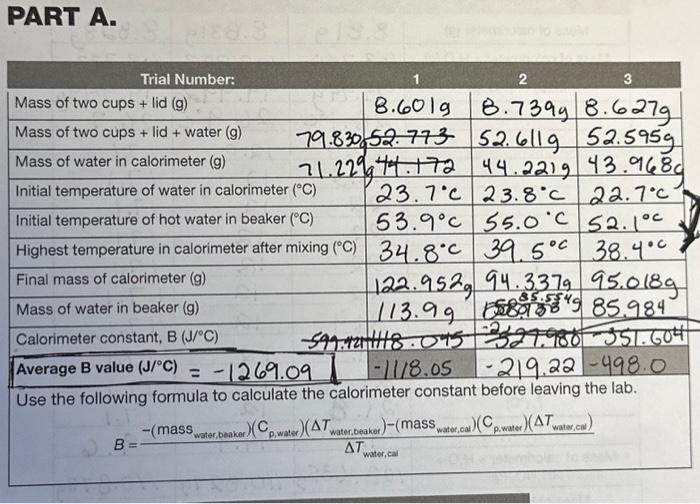 PART A.
Trial Number: 1 2 3
Mass of two cups + lid (g) 8.601g 8.739g 8.627g
Mass of two cups + lid + water (g) 79.830g 52.773 52.611g 52.595g
Mass of water in calorimeter (g) 71.229g 44.172 44.221g 43.968g
Initial temperature of water in calorimeter (°C) 23.7°C 23.8°C 22.7°C
Initial temperature of hot water in beaker (°C) 53.9°C 55.0°C 52.1°C
Highest temperature in calorimeter after mixing (°C) 34.8°C 39.5°C 38.4°C
Final mass of calorimeter (g) 122.952g 94.337g 95.018g
Mass of water in beaker (g) 113.9g 85.554g 85.984
Calorimeter constant, B (J/°C) -599.421 -1118.045 -327.986 -351.604
Average B value (J/°C) = -1269.09 -1118.05 -219.22 -498.0
Use the following formula to calculate the calorimeter constant before leaving the lab.
B = −(mass water,beaker)(Cp,water)(ΔT water,beaker)−(mass water,cal)(Cp,water)(ΔT water,cal)
ΔT water,cal